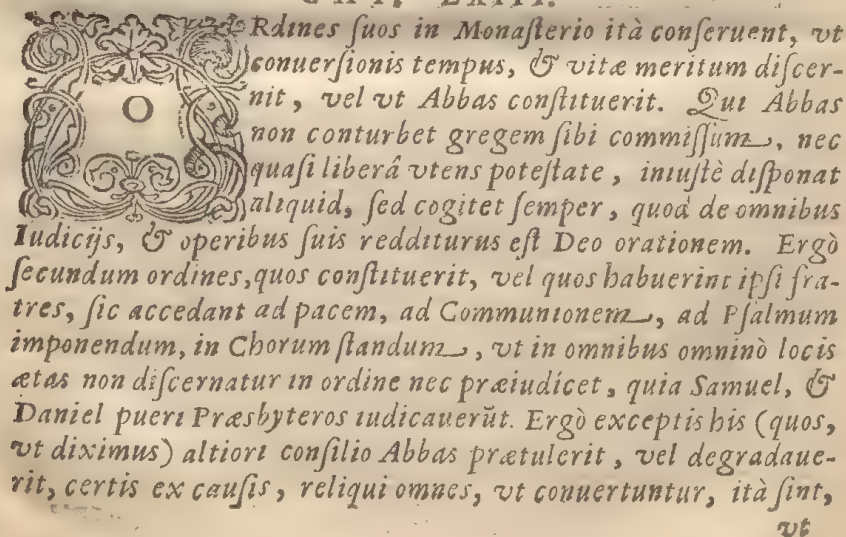 ORdines suos in Monasterio ità conseruent, vt
conuersionis tempus, & vitæ meritum discer-
nit, vel vt Abbas constituerit. Qui Abbas
non conturbet gregem sibi commissum, nec
quasi liberâ vtens potestate, iniustè disponat
aliquid, sed cogitet semper, quod de omnibus
Iudicijs, & operibus suis redditurus est Deo orationem. Ergò
secundum ordines, quos constituerit, vel quos habuerint ipsi fra-
tres, sic accedant ad pacem, ad Communionem, ad Psalmum
imponendum, in Chorum standum, vt in omnibus omninò locis
ætas non discernatur in ordine nec præiudicet, quia Samuel, &
Daniel pueri Præsbyteros iudicauerũt. Ergò exceptis his (quos,
vt diximus) altiori consilio Abbas prætulerit, vel degradaue-
rit, certis ex causis, reliqui omnes, vt conuertuntur, ità sint,
vt